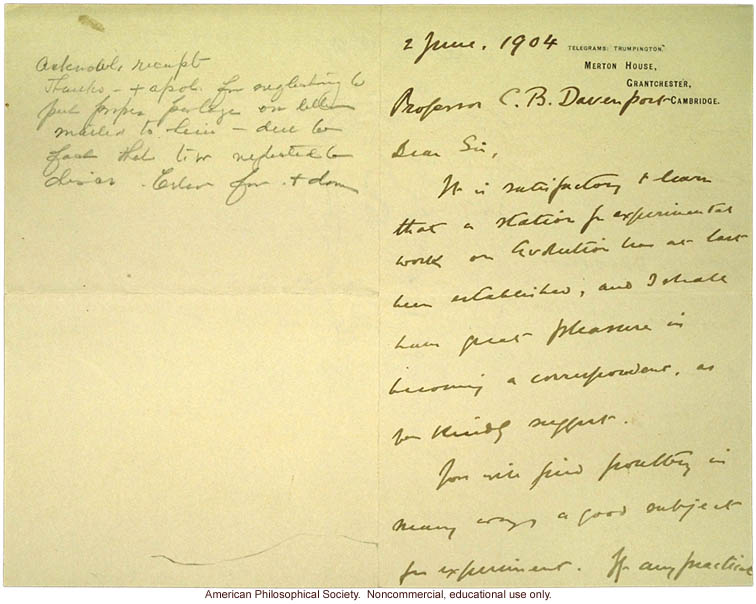 Acknowl. receipt
Thanks - + apol. for neglecting to
put proper postage on letter
mailed to him - due to
fact that
2 June. 1904
TELEGRAMS: TRUMPINGTON.
MERTON HOUSE,
GRANTCHESTER,
CAMBRIDGE.
Professor C. B. Davenport
Dear Sir,
It is satisfactory to learn
that a station for experimental
work on Evolution has at last
been established, and I shall
have great pleasure in
becoming a correspondent, as
you kindly suggest.
You will find poultry in
many ways a good subject
for experiment. If any practical
American Philosophical Society. Noncommercial, educational use only.